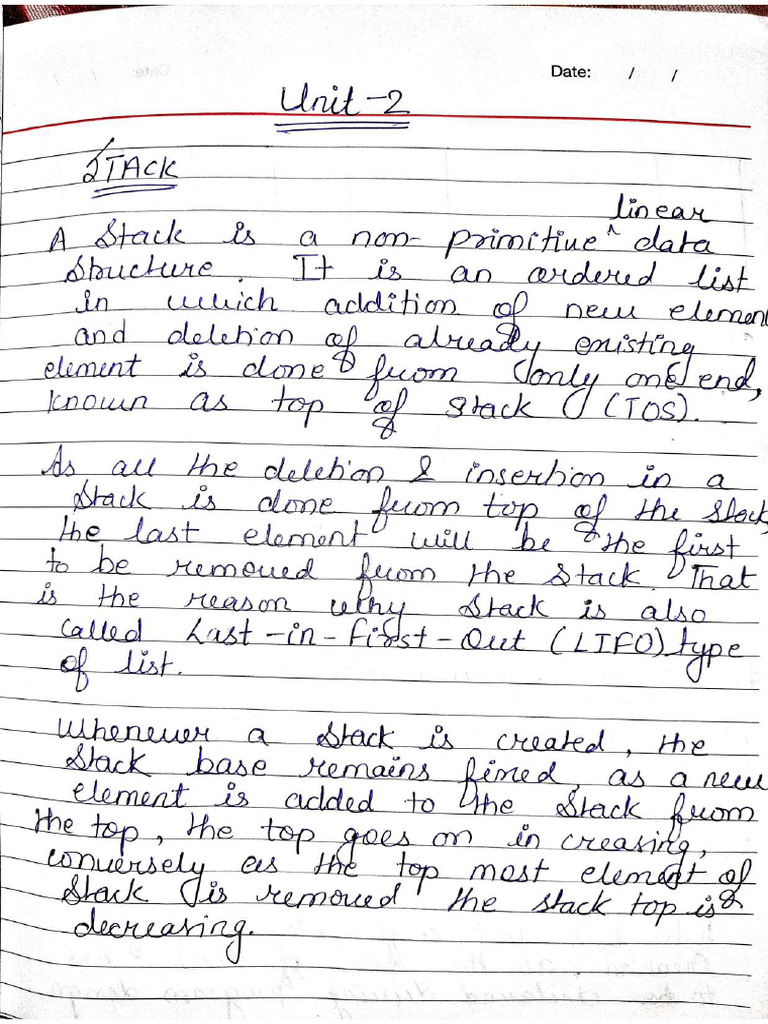 Date: / /
Unit-2
STACK
linear
A Stack is a non-primitive ^ data
structure. It is an ordered list
in which addition of new element
and deletion of already existing
element is done from only one end,
known as top of stack (TOS).
As all the deletion & insertion in a
Stack is done from top of the stack,
the last element will be the first
to be removed from the stack. That
is the reason why stack is also
called Last-in-First-Out (LIFO) type
of list.
Whenever a stack is created, the
stack base remains fixed, as a new
element is added to the stack from
the top, the top goes on in creasing,
conversely as the top most element of
stack is removed the stack top is
decreasing.